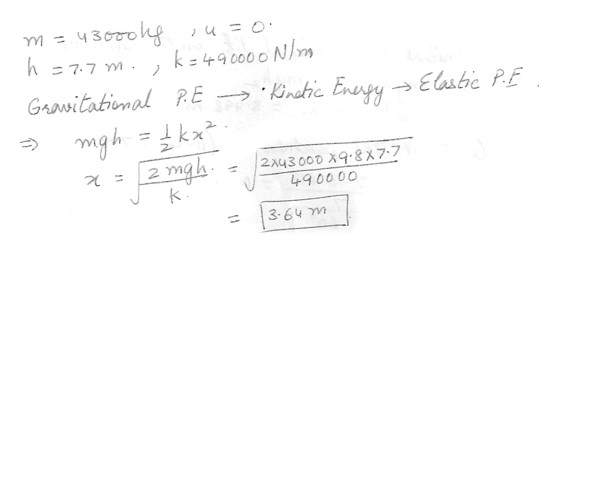 m = 43000kg , u = 0.
h = 7.7 m. , k = 490000 N/m
Gravitational P.E → Kinetic Energy → Elastic P.E.
⇒ mgh = 1/2 kx².
x = √(2 mgh. / k.) = √(2x43000 x9.8x7.7 / 490000)
= 3.64 m